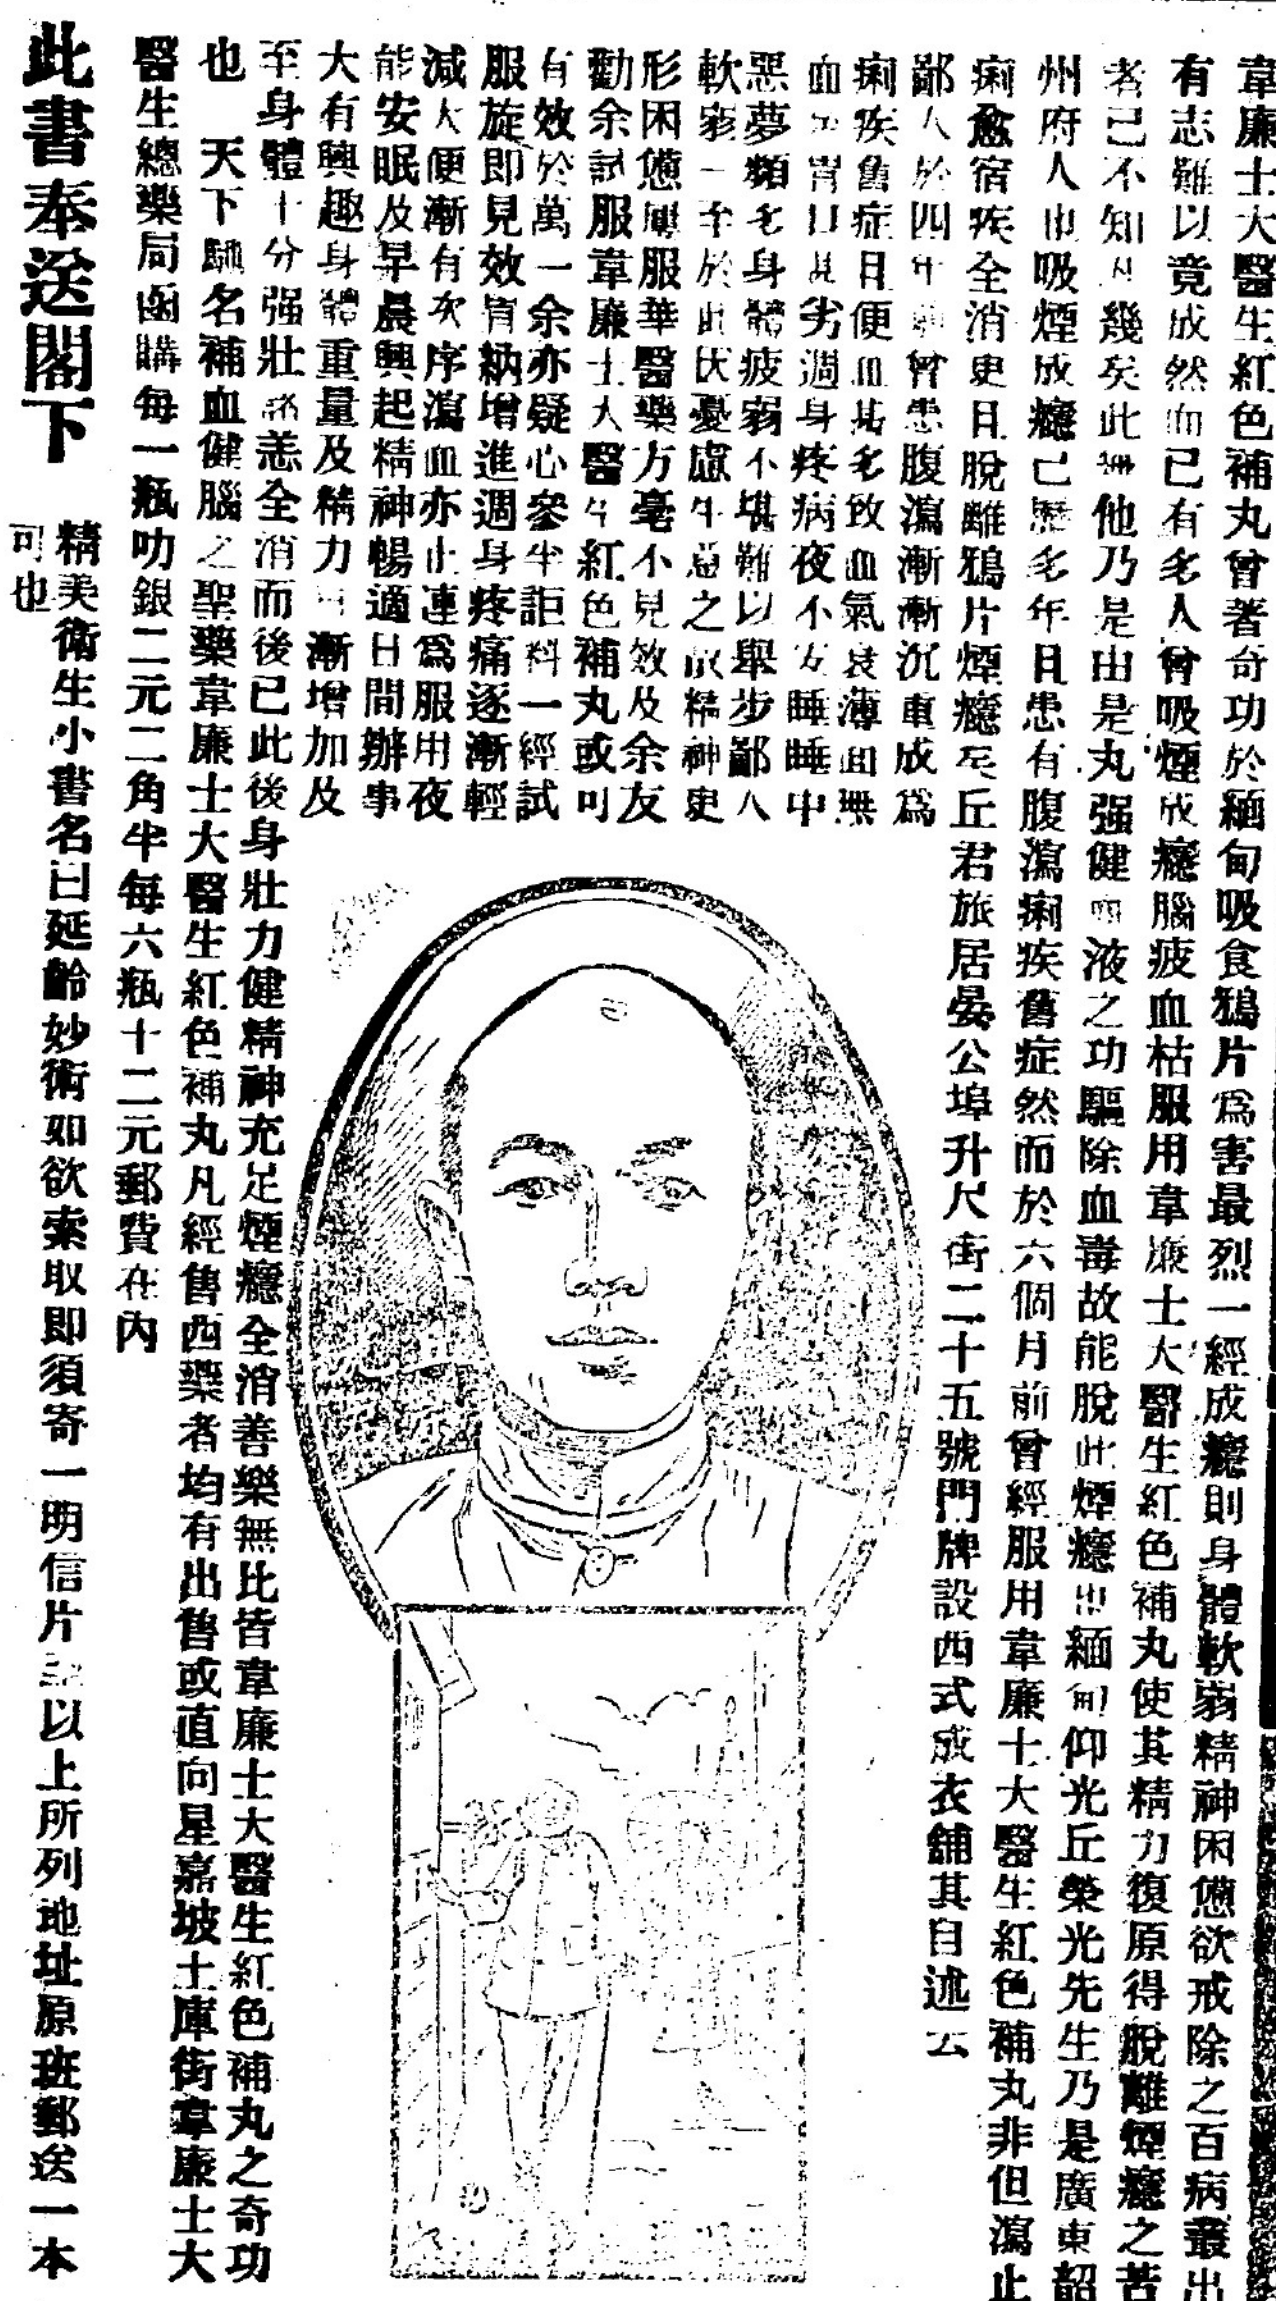 韋廉士大醫生紅色補丸曾著奇功於緬甸吸食鴉片為害最烈一經成癮則身體軟弱精神困憊欲戒除之百病叢出
有志難以竟成然而已有多人曾吸煙成癮腦疲血枯服用韋廉士大醫生紅色補丸使其精力復原得脫離煙癮之苦
者已不知凡幾矣此無他乃是由是丸强健血液之功驅除血毒故能脫此煙癮也緬甸仰光丘榮光先生乃是廣東韶
州府人也吸煙成癮已歷多年且患有腹瀉痢疾舊症然而於六個月前曾經服用韋廉士大醫生紅色補丸非但瀉止
痢愈宿疾全消更且脫離鴉片煙癮矣丘君旅居晏公埠升尺街二十五號門牌設西式成衣舖其自述云
鄙人於四年前曾患腹瀉漸漸沉重成為
痢疾舊症且便血甚多致血氣衰薄面無
血胃口甚劣週身疼病夜不安睡睡中
惡夢頻多身體疲弱不堪難以舉步鄙人
軟弱一至於此因憂慮之故精神更
形困憊屢服華醫藥方毫不見效及余友
勸余試服韋廉士大醫生紅色補丸或可
有效於萬一余亦疑心參半詎料一經試
服旋即見效胃納增進週身疼痛逐漸輕
減大便漸有次序瀉血亦止連為服用夜
能安眠及早晨興起精神暢適日間辦事
大有興趣身體重量及精力漸增加及
至身體十分强壯諸恙全消而後已此後身壯力健精神充足煙癮全消善樂無比皆韋廉士大醫生紅色補丸之奇功
也 天下馳名補血健腦之聖藥韋廉士大醫生紅色補丸凡經售西藥者均有出售或直向星嘉坡土庫街韋廉士大
醫生總藥局函購每一瓶叻銀二元二角半每六瓶十二元郵費在內
此書奉送閣下
精美衛生小書名曰延齡妙術如欲索取即須寄一明信片至以上所列地址原班郵送一本
可也